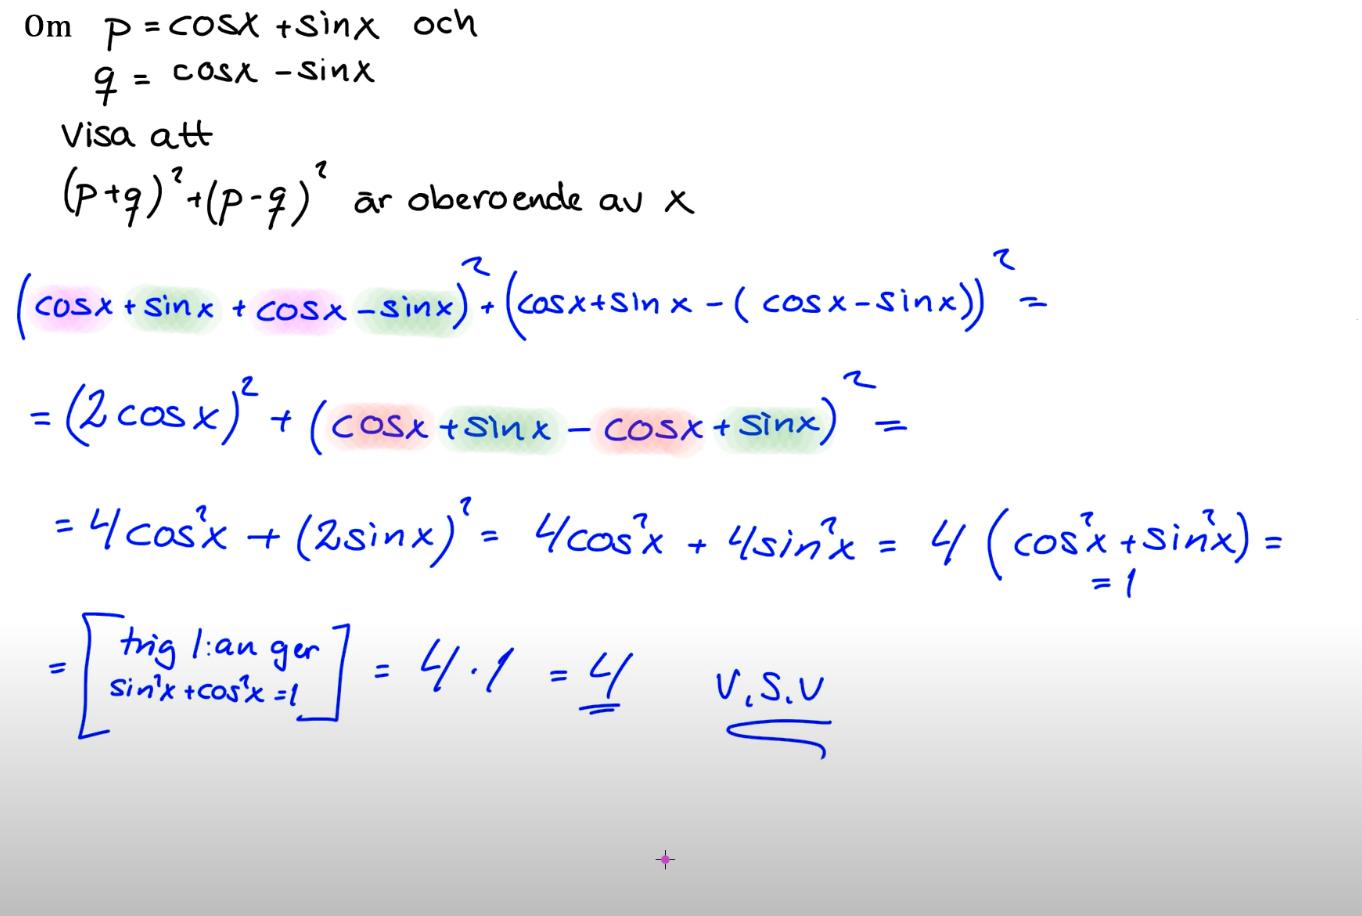 Om p = cosx + sinx och
q = cosx - sinx
Visa att
(p+q)² + (p-q)² är oberoende av x
(cosx + sinx + cosx - sinx)² + (cosx + sinx - (cosx - sinx))² =
= (2cosx)² + (cosx + sinx - cosx + sinx)² =
= 4cos²x + (2sinx)² = 4cos²x + 4sin²x = 4(cos²x + sin²x) =
= 1
= [trig 1:an ger
sin²x + cos²x = 1] = 4·1 = 4 V.S.V